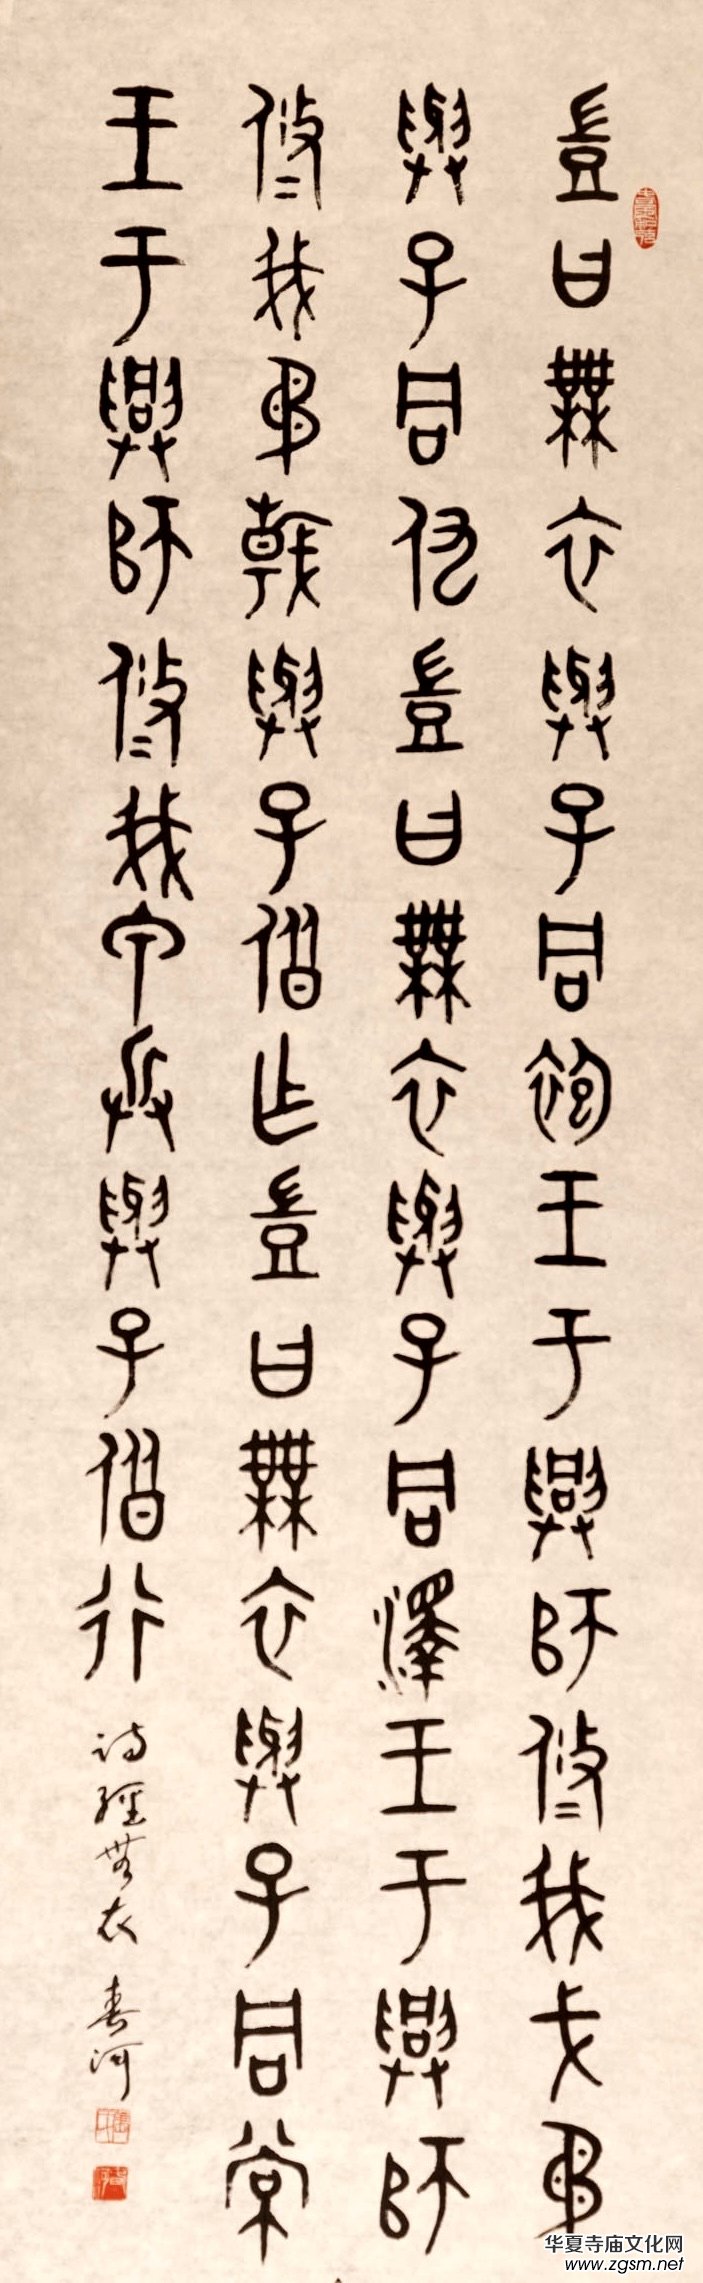 豈曰無衣與子同袍王于興師修我戈矛
與子同仇豈曰無衣與子同澤王于興師
修我矛戟與子偕作豈曰無衣與子同裳
王于興師修我甲兵與子偕行
詩經無衣 春河
华夏寺庙文化网
www.zgsm.net